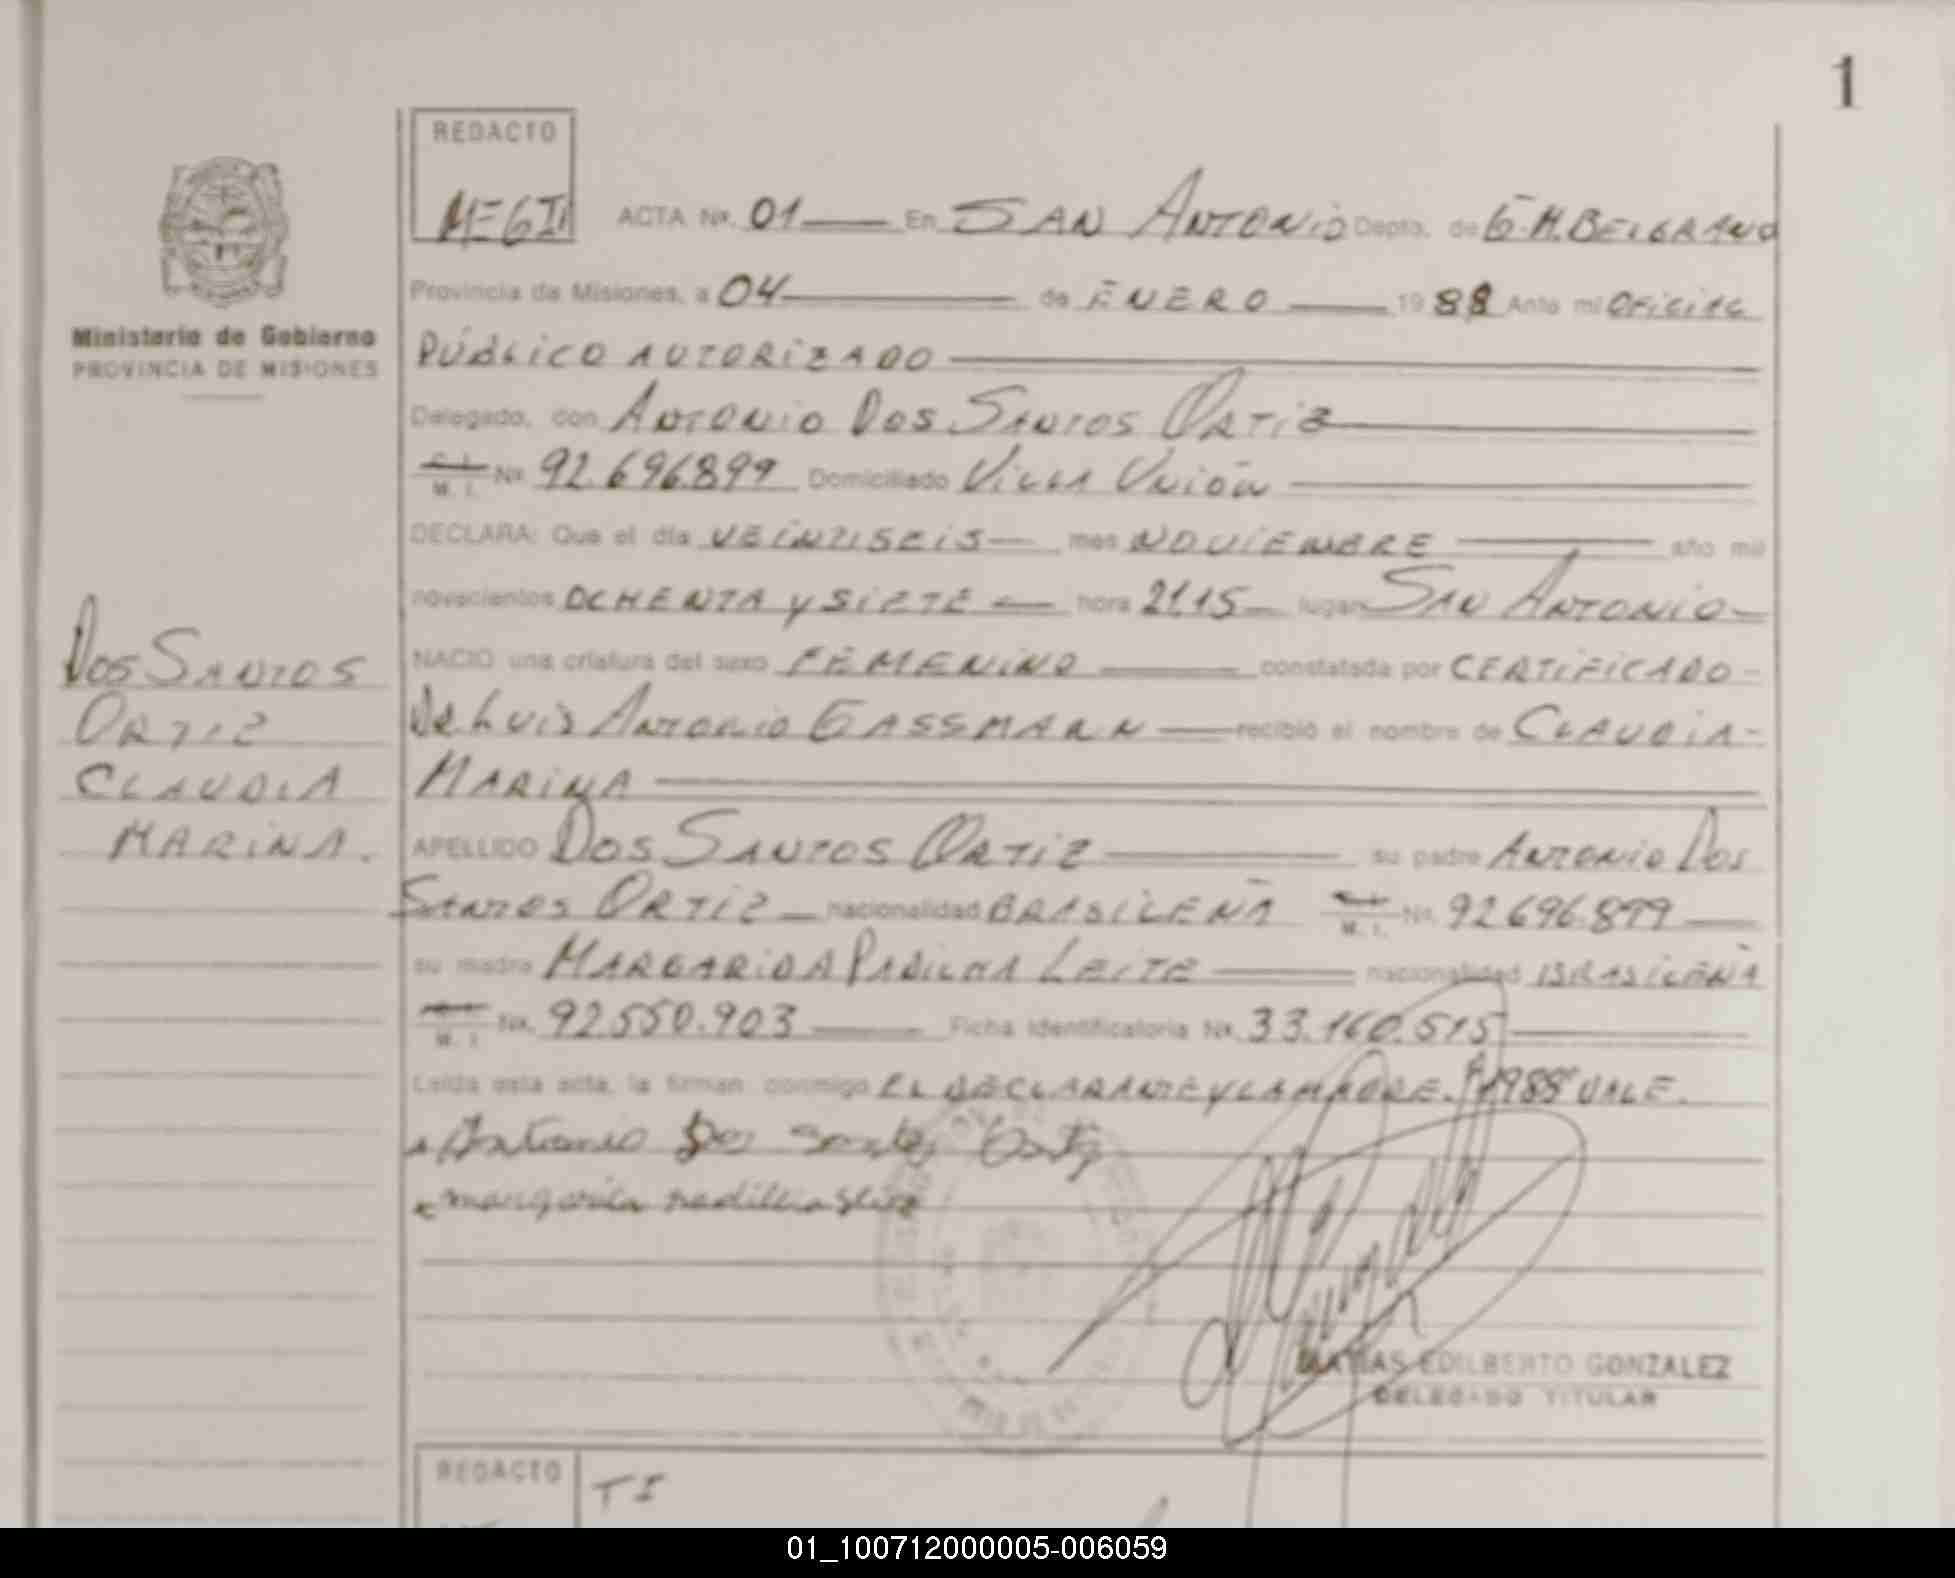 1
REDACTO
MEGII
ACTA Nº. 01 En SAN ANTONIO Depto. de G.M. BELGRANO
Provincia de Misiones, a 04 de ENERO 1988 Ante mi OFICIAL
PÚBLICO AUTORIZADO
Delegado, con ANTONIO DOS SANTOS ORTIZ
C. I. M. I. Nº. 92.696.899 Domiciliado VILLA UNIÓN
DECLARA: Que el día VEINTISEIS mes NOVIEMBRE año mil
novecientos OCHENTA Y SIETE hora 21:15 lugar SAN ANTONIO
NACIO una criatura del sexo FEMENINO constatada por CERTIFICADO
DR. LUIS ANTONIO GASSMANN recibió el nombre de CLAUDIA
MARINA
APELLIDO DOS SANTOS ORTIZ su padre ANTONIO DOS
SANTOS ORTIZ nacionalidad BRASILEÑA M. I. Nº. 92.696.899
su madre MARGARIDA PADILHA LEITE nacionalidad BRASILEÑA
M. I. Nº. 92.550.903 Ficha Identificatoria Nº. 33.160.515
Leída esta acta, la firman conmigo EL DECLARANTE Y LA MADRE. "1988" VALE.
Antonio Dos Santos Ortiz
MATIAS EDILBERTO GONZALEZ
DELEGADO TITULAR
Ministerio de Gobierno
PROVINCIA DE MISIONES
DOS SANTOS
ORTIZ
CLAUDIA
MARINA.
REDACTO
TI
01_100712000005-006059